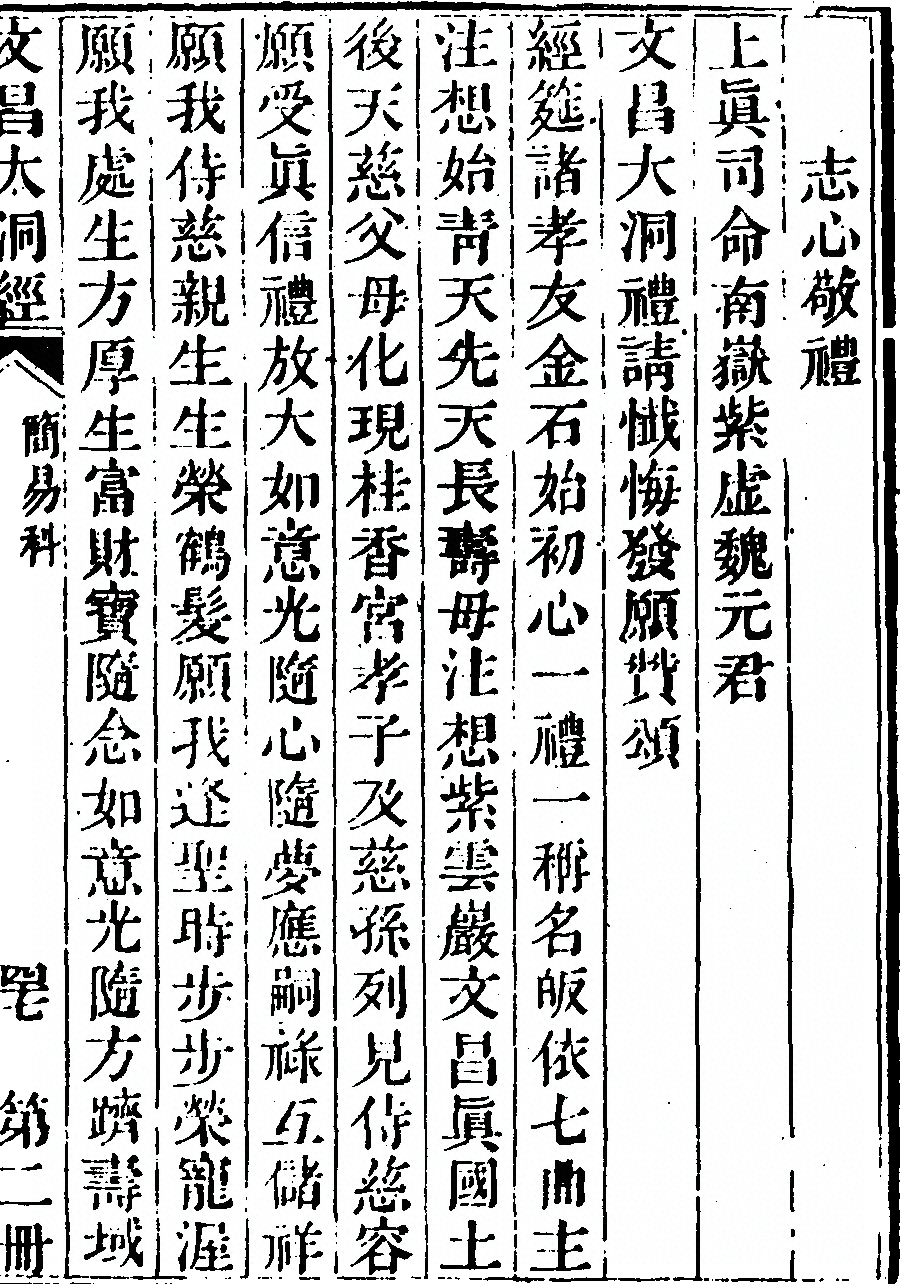 志心敬禮
上眞司命南嶽紫虛魏元君
文昌大洞禮請懺悔發願贊頌
經筵諸孝友金石始初心一禮一稱名皈依七曲主
注想始靑天先天長壽母注想紫雲巖文昌眞國土
後天慈父母化現桂香宮孝子及慈孫列見侍慈容
願受眞信禮放大如意光隨心隨夢應嗣祿互儲祥
願我侍慈親生生榮鶴髮願我逢聖時步步榮寵渥
願我處生方厚生富財寶隨念如意光隨方躋壽域
文昌大洞經
簡易科
第二冊